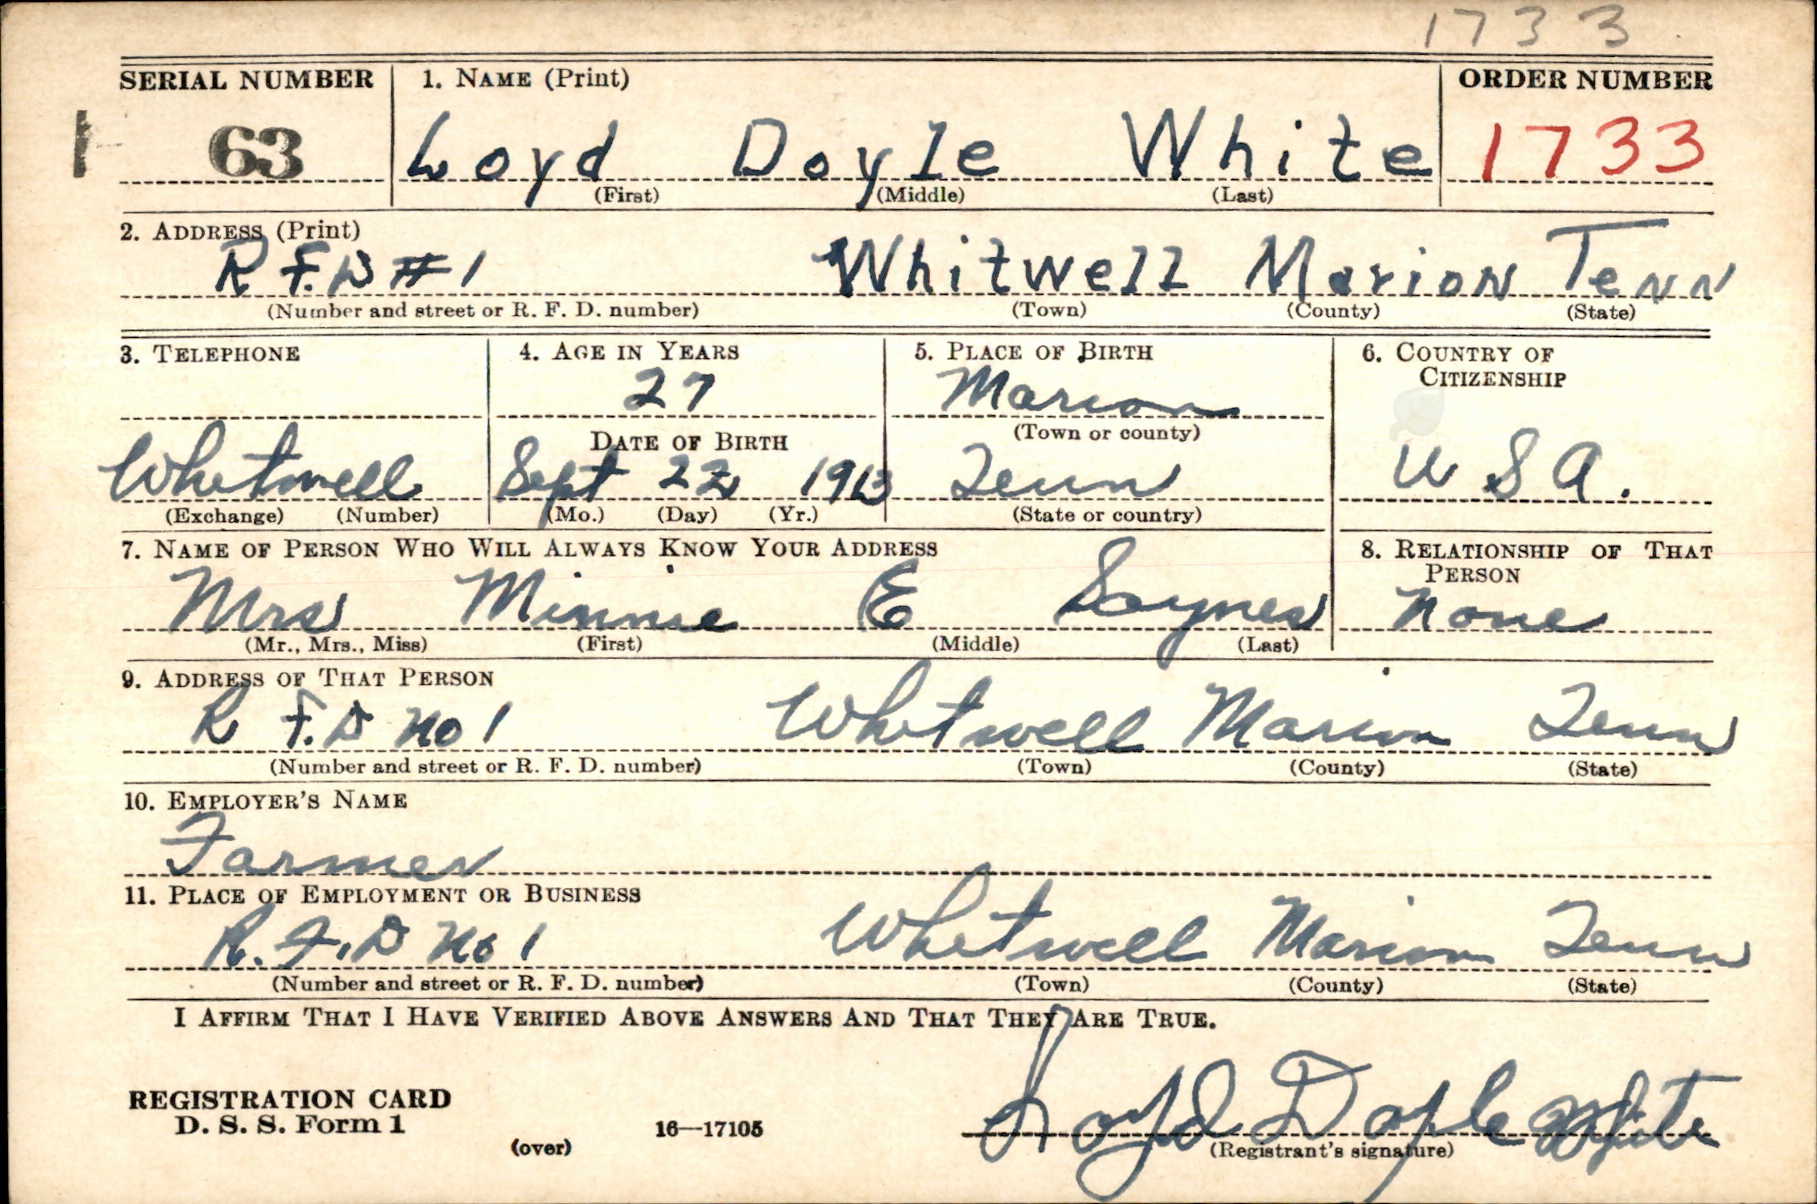 1733
SERIAL NUMBER 1. NAME (Print) ORDER NUMBER
63 Loyd Doyle White 1733
(First) (Middle) (Last)
2. ADDRESS (Print)
R F.D #1 Whitwell Marion Tenn
(Number and street or R. F. D. number) (Town) (County) (State)
3. TELEPHONE 4. AGE IN YEARS 5. PLACE OF BIRTH 6. COUNTRY OF CITIZENSHIP
27 Marion
DATE OF BIRTH (Town or county)
Whitwell Sept 22 1913 Tenn U S A.
(Exchange) (Number) (Mo.) (Day) (Yr.) (State or country)
7. NAME OF PERSON WHO WILL ALWAYS KNOW YOUR ADDRESS 8. RELATIONSHIP OF THAT PERSON
Mrs Minnie E None
(Mr., Mrs., Miss) (First) (Middle) (Last)
9. ADDRESS OF THAT PERSON
R F.D No 1 Whitwell Marion Tenn
(Number and street or R. F. D. number) (Town) (County) (State)
10. EMPLOYER'S NAME
Farmer
11. PLACE OF EMPLOYMENT OR BUSINESS
R. F. D No 1 Whitwell Marion Tenn
(Number and street or R. F. D. number) (Town) (County) (State)
I AFFIRM THAT I HAVE VERIFIED ABOVE ANSWERS AND THAT THEY ARE TRUE.
REGISTRATION CARD
D. S. S. Form 1 16—17105 Loyd Doyle White
(over) (Registrant's signature)